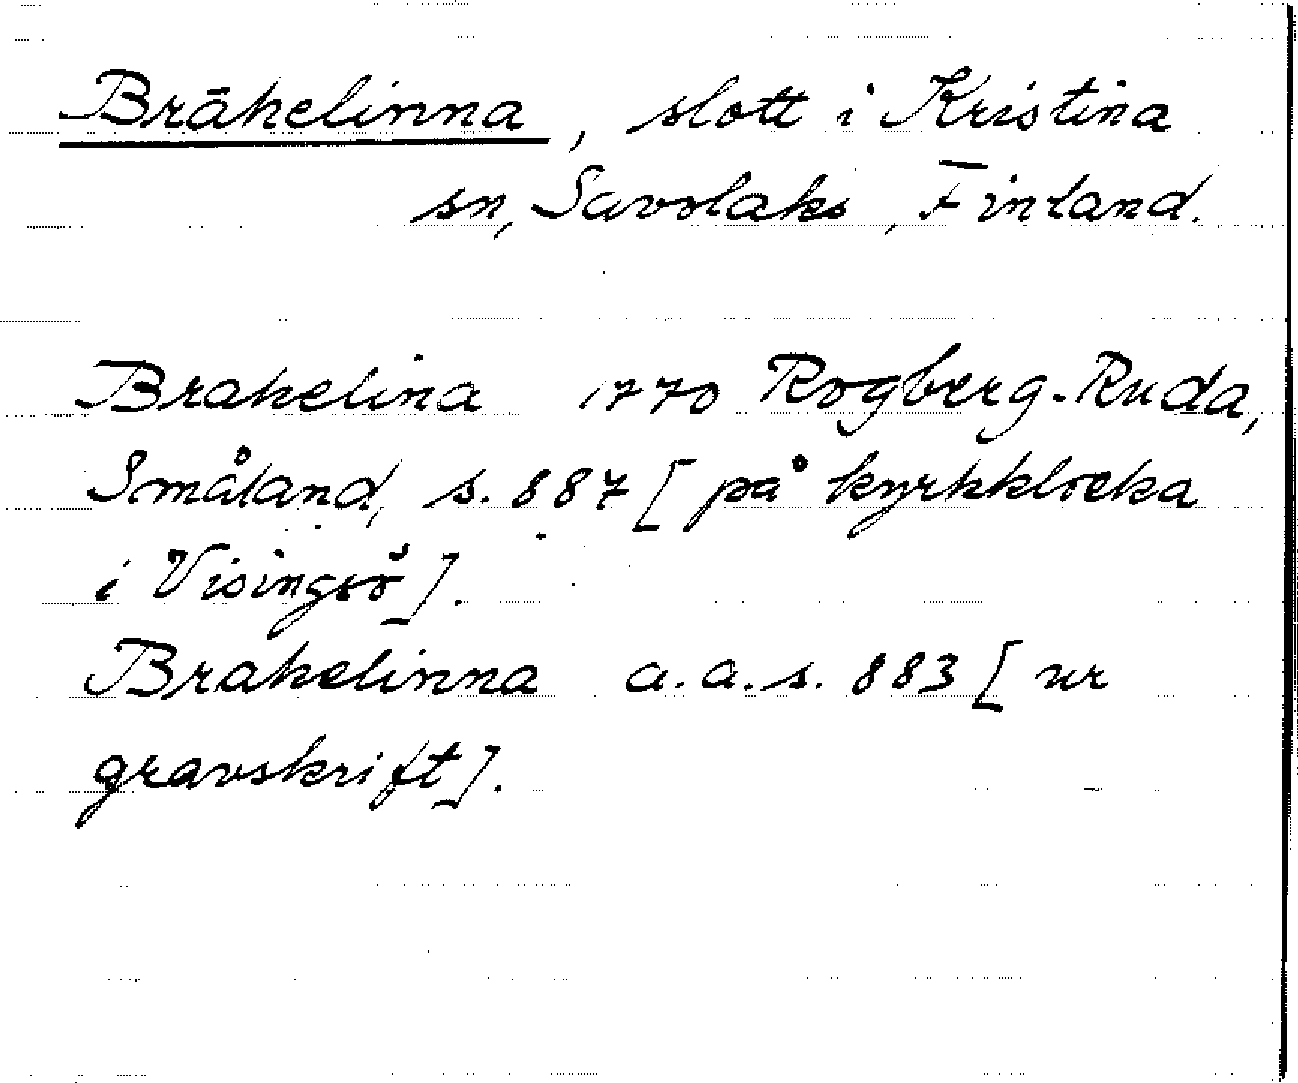 Brākelinna, slott i Kristina
sn, Savolaks, Finland.
Brakelina 1770 Rogberg-Ruda,
Småland, s. 887 [på kyrkklocka
i Visingsö].
Brakelinna a.a.s. 883 [ur
gravskrift].